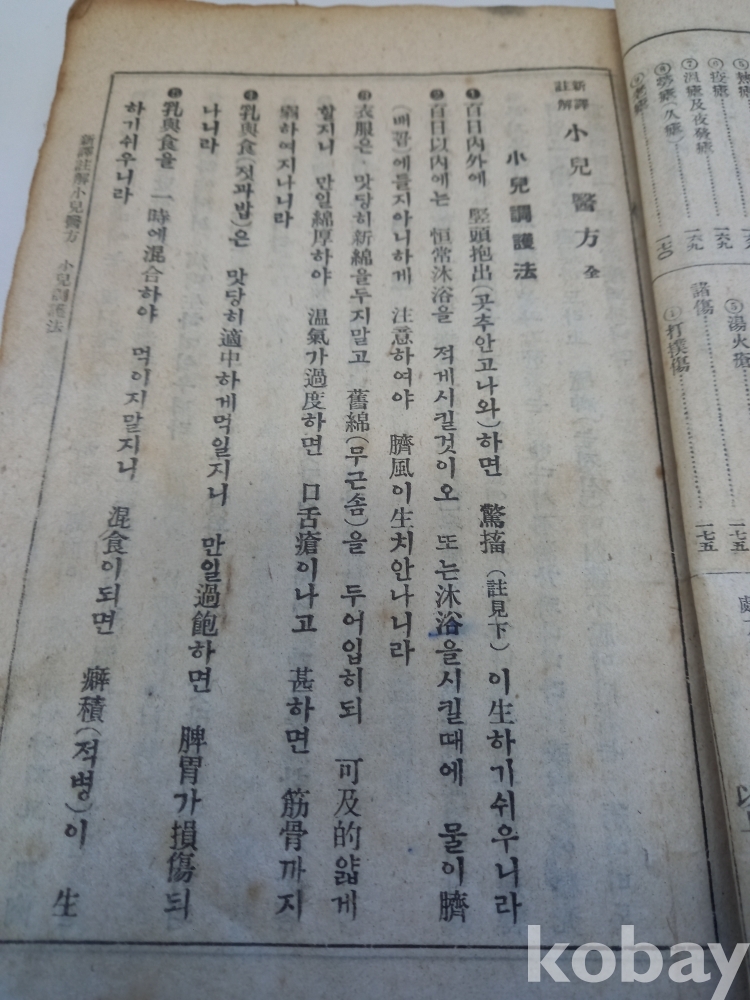 新譯
註解 小兒醫方 全
小兒調護法
❶ 百日內外에 竪頭抱出(곳추안고나와)하면 驚搐(註見下)이生하기쉬우니라
❷ 百日以內에는 恒常沐浴을 적게시킬것이오 또는沐浴을시킬때에 물이臍
(배꼽)에들지아니하게 注意하여야 臍風이生치안나니라
❸ 衣服은 맛당히新綿을두지말고 舊綿(무근솜)을 두어입히되 可及的얇게
할지니 만일綿厚하야 温氣가過度하면 口舌瘡이나고 甚하면 筋骨까지
弱하여지나니라
❹ 乳與食(젓과밥)은 맛당히適中하게먹일지니 만일過飽하면 脾胃가損傷되
나니라
❺ 乳與食을 一時에混合하야 먹이지말지니 混食이되면 癖積(적병)이 生
하기쉬우니라
新譯註解小兒醫方 小兒調護法
⑥
⑦ 疫瘧及夜發瘧 一六九
⑧ 勞瘧(久瘧) 一六九
一七〇
諸傷
① 打撲傷 一七五
⑤ 湯火傷 一七五
kobay